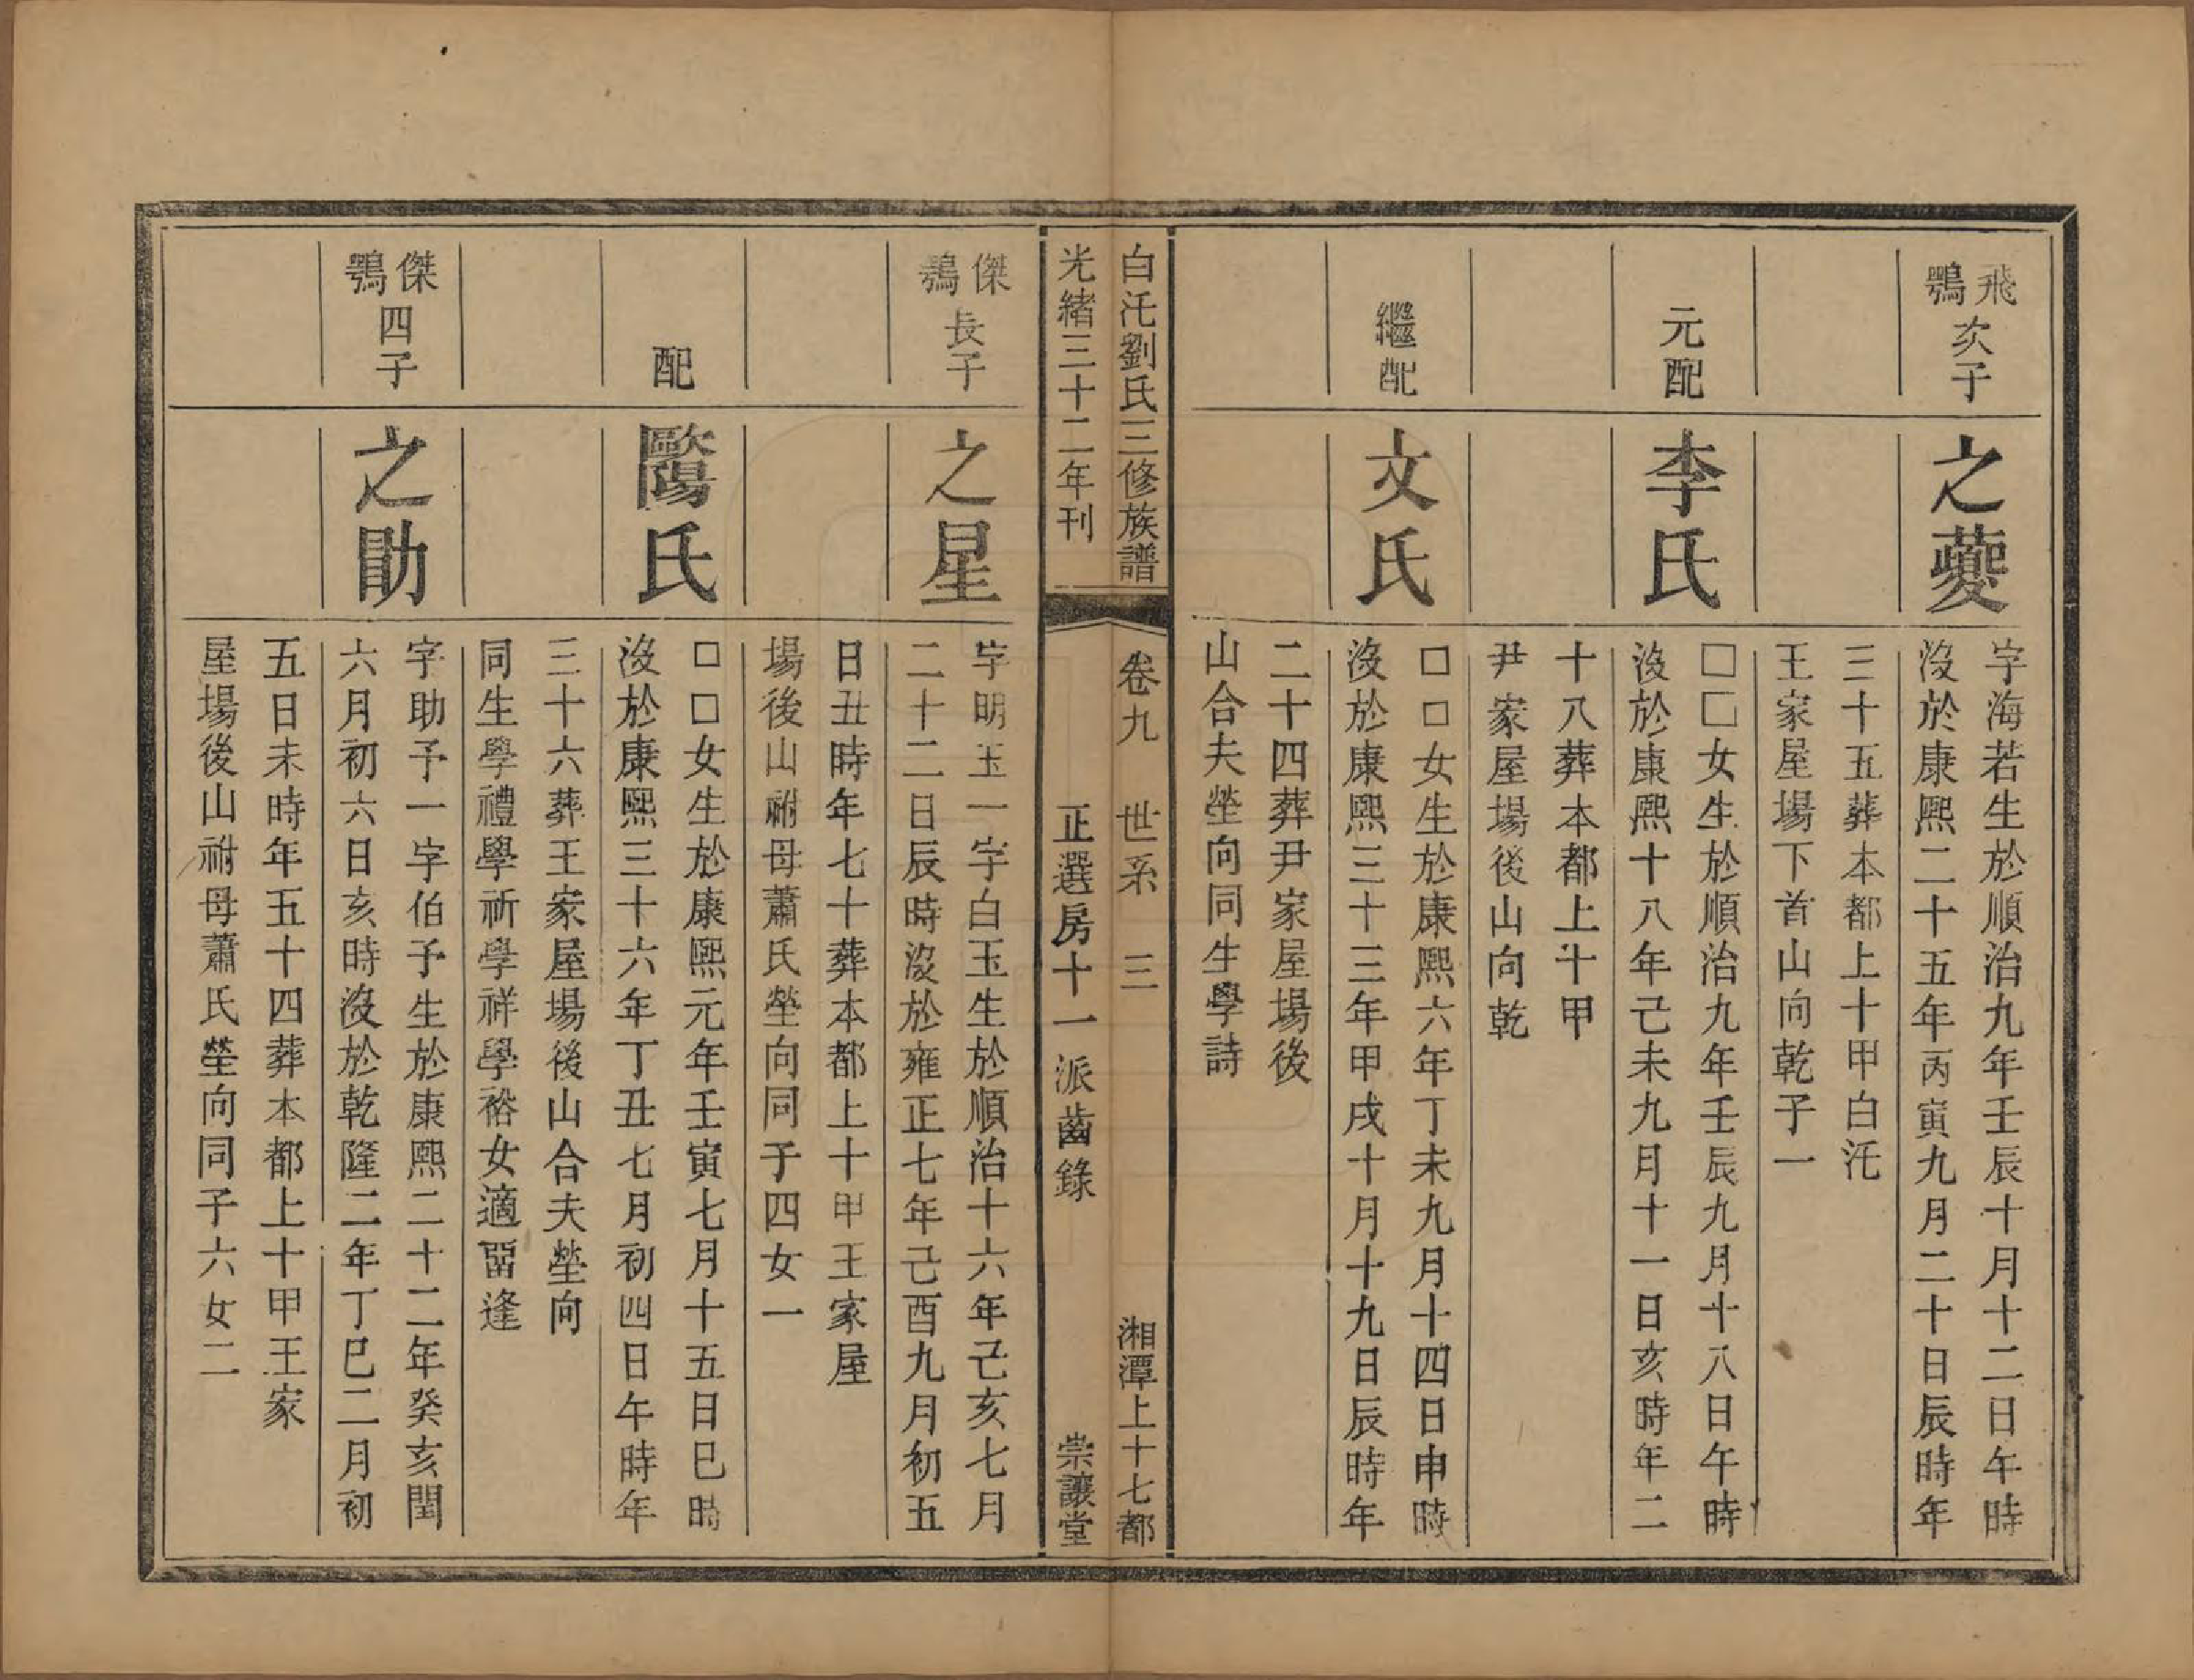 飛鶚次子
之夔
字海若生於順治九年壬辰十月十二日午時
沒於康熙二十五年丙寅九月二十日辰時年
三十五葬本都上十甲白汑
王家屋場下首山向乾子一
元配
李氏
□□女生於順治九年壬辰九月十八日午時
沒於康熙十八年己未九月十一日亥時年二
十八葬本都上十甲
尹家屋場後山向乾
繼配
文氏
□□女生於康熙六年丁未九月十四日申時
沒於康熙三十三年甲戌十月十九日辰時年
二十四葬尹家屋場後
山合夫塋向同生學詩
白汑劉氏三修族譜
卷九 世系 三
湘潭上十七都
光緒三十二年刊
正選房十一派齒錄
崇讓堂
傑鶚長子
之星
字明玉一字白玉生於順治十六年己亥七月
二十二日辰時沒於雍正七年己酉九月初五
日丑時年七十葬本都上十甲王家屋
場後山祔母蕭氏塋向同子四女一
配
歐陽氏
□□女生於康熙元年壬寅七月十五日巳時
沒於康熙三十六年丁丑七月初四日午時年
三十六葬王家屋場後山合夫塋向
同生學禮學祈學祥學裕女適畱逢
傑鶚四子
之勛
字助予一字伯予生於康熙二十二年癸亥閏
六月初六日亥時沒於乾隆二年丁巳二月初
五日未時年五十四葬本都上十甲王家
屋場後山祔母蕭氏塋向同子六女二